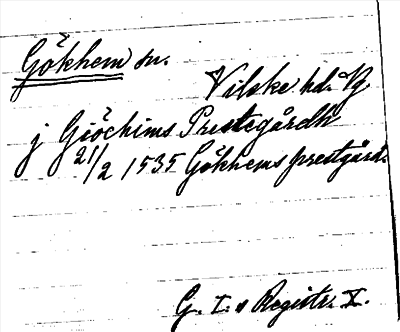 Gökhem sn.
Vilske hd. Vg
j Giöchims Prestegårdh
21/2 1535 Gökhems prestgård.
G. I. s Registr. X.